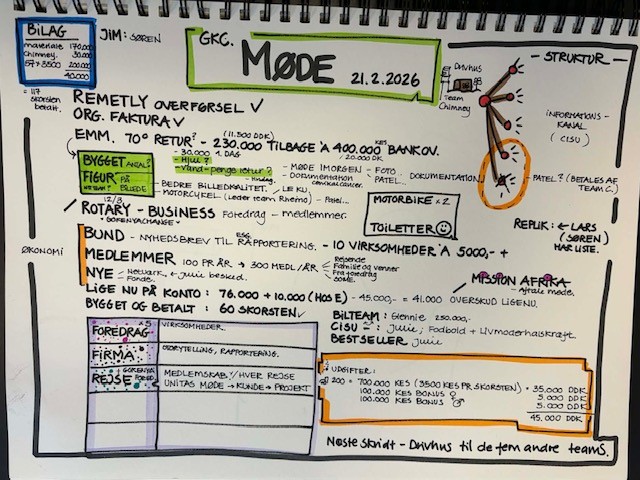 BILAG
materiale 170.000
chimney. 30.000
57 x 3500 200.000
40.000
= 117
skorsten
betalt.
JIM: SØREN
GKC.
MØDE
21.2.2026
- STRUKTUR -
Drivhus
Team
Chimney
INFORMATIONS-
KANAL
(CISU)
PATEL? (BETALES AF
TEAM C.)
REMETLY OVERFØRSEL ✓
ORG. FAKTURA ✓
EMM. 70° RETUR? - 230.000 TILBAGE A 400.000 KES BANKOV.
(11.500 DDK)
20.000 DK
BYGGET ANTAL?
FIGUR
PÅ
BILLEDE
- 30.000 1. DAG
- Hjul?
- Vand-penge retur?
- MØDE IMORGEN - FOTO
- Dokumentation PATEL.
cervical cancer.
DOKUMENTATION
- BEDRE BILLEDKVALITET. LE KU.
- MOTORCYKEL (Leder team Rheimo) - Patel.
MOTORBIKE x 2
TOILETTER ☺
12/3
ROTARY - BUSINESS Foredrag - medlemmer.
REPLIK: ← LARS
(SØREN)
HAR LISTE.
ØKONOMI
BUND - NYHEDSBREV TIL RAPPORTERING. - 10 VIRKSOMHEDER A 5000,- +
MEDLEMMER 100 PR ÅR → 300 MEDL/ÅR
Rejsende
Familie og venner
Fra foredrag
SOME.
NYE - Netværk, ← Julie besked.
- Fonde.
MISSION AFRIKA
- Aftale møde.
LIGE NU PÅ KONTO: 76.000 + 10.000 (HOS E) - 45.000,- = 41.000 OVERSKUD LIGENU.
BYGGET OG BETALT: 60 SKORSTEN ✓
BILTEAM: Glennie 250.000,-
CISU =: Julie; Fodbold + Livmoderhalskræft.
BESTSELLER Julie
FOREDRAG x 5
VIRKSOMHEDER.
FIRMA
STORYTELLING, RAPPORTERING.
REJSE
MEDLEMSKAB / HVER REJSE
UNITAS MØDE → KUNDE → PROJEKT
UDGIFTER:
200 = 700.000 KES (3500 KES PR. SKORSTEN) = 35.000 DDK
100.000 KES BONUS ♀ 5.000 DDK
100.000 KES BONUS ♂ 5.000 DDK
45.000 DDK
Næste skridt - Drivhus til de fem andre teams.